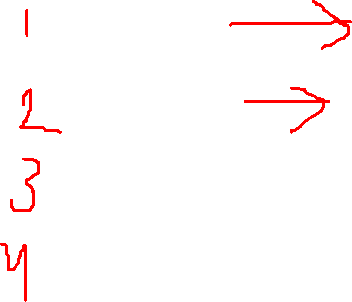 1 →
2 →
3
4